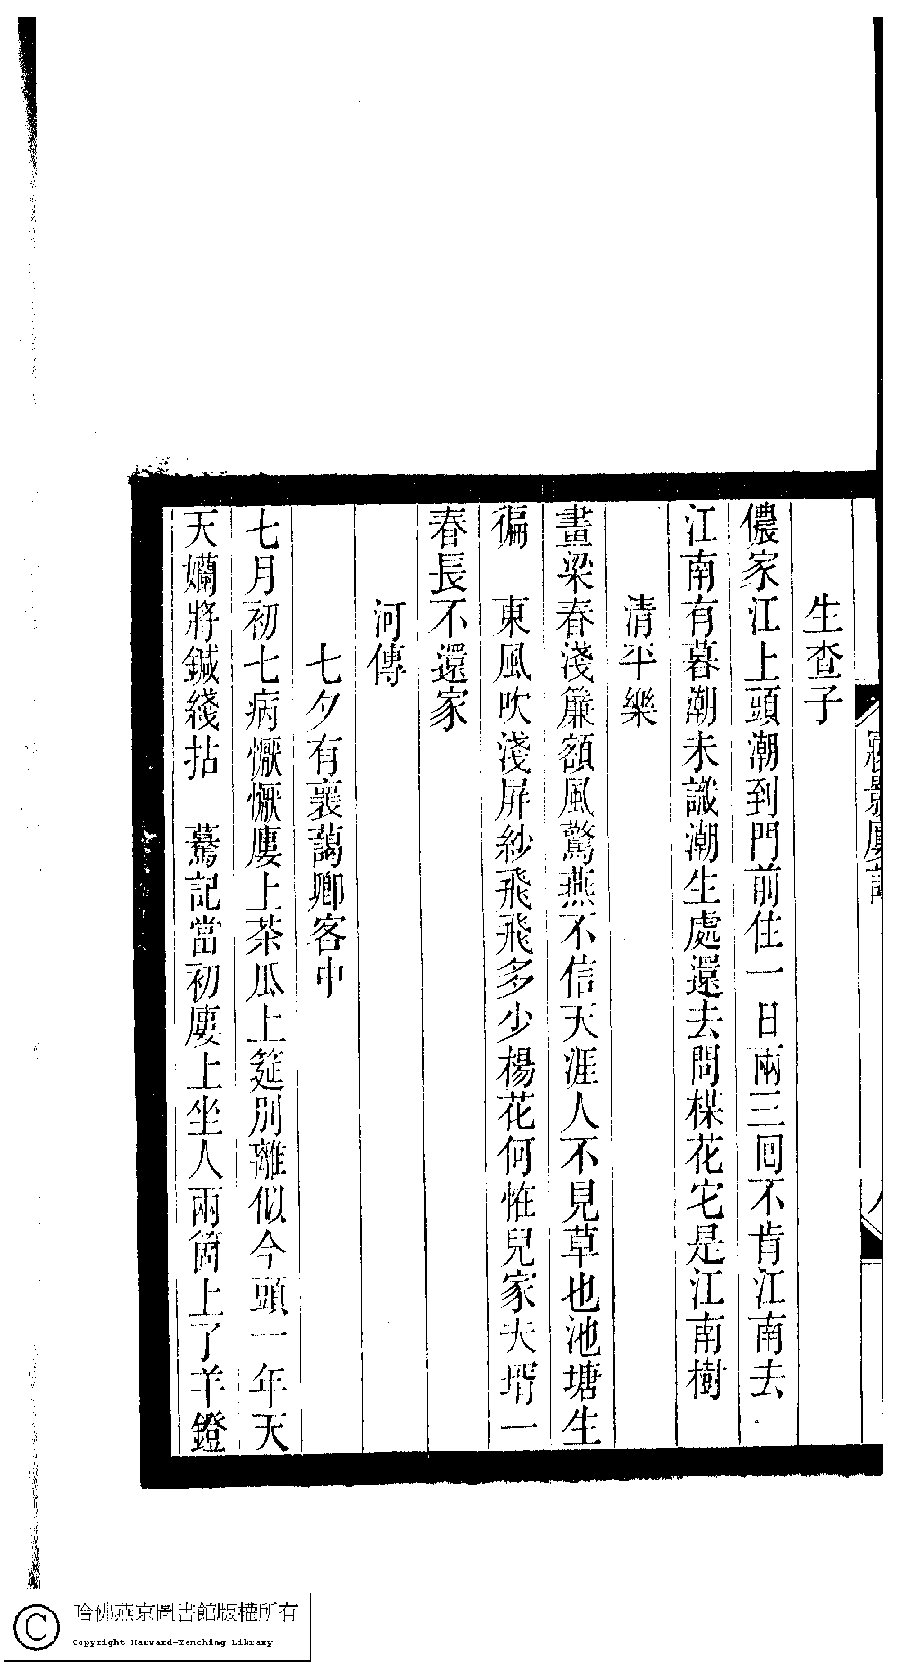 生查子
儂家江上頭潮到門前住一日兩三回不肯江南去
江南有暮潮未識潮生處還去問楳花宅是江南樹
清平樂
畫梁春淺簾額風驚燕不信天涯人不見草也池塘生
徧　東風吹淺屏紗飛飛多少楊花何惟兒家夫壻一
春長不還家
河傳
七夕有裹藹卿客中
七月初七病懨懨廔上茶瓜上筵別離似今頭一年天
天嬾將鍼綫拈　驀記當初廔上坐人兩箇上了羊鐙
哈佛燕京圖書館版權所有
Copyright Harvard-Yenching Library